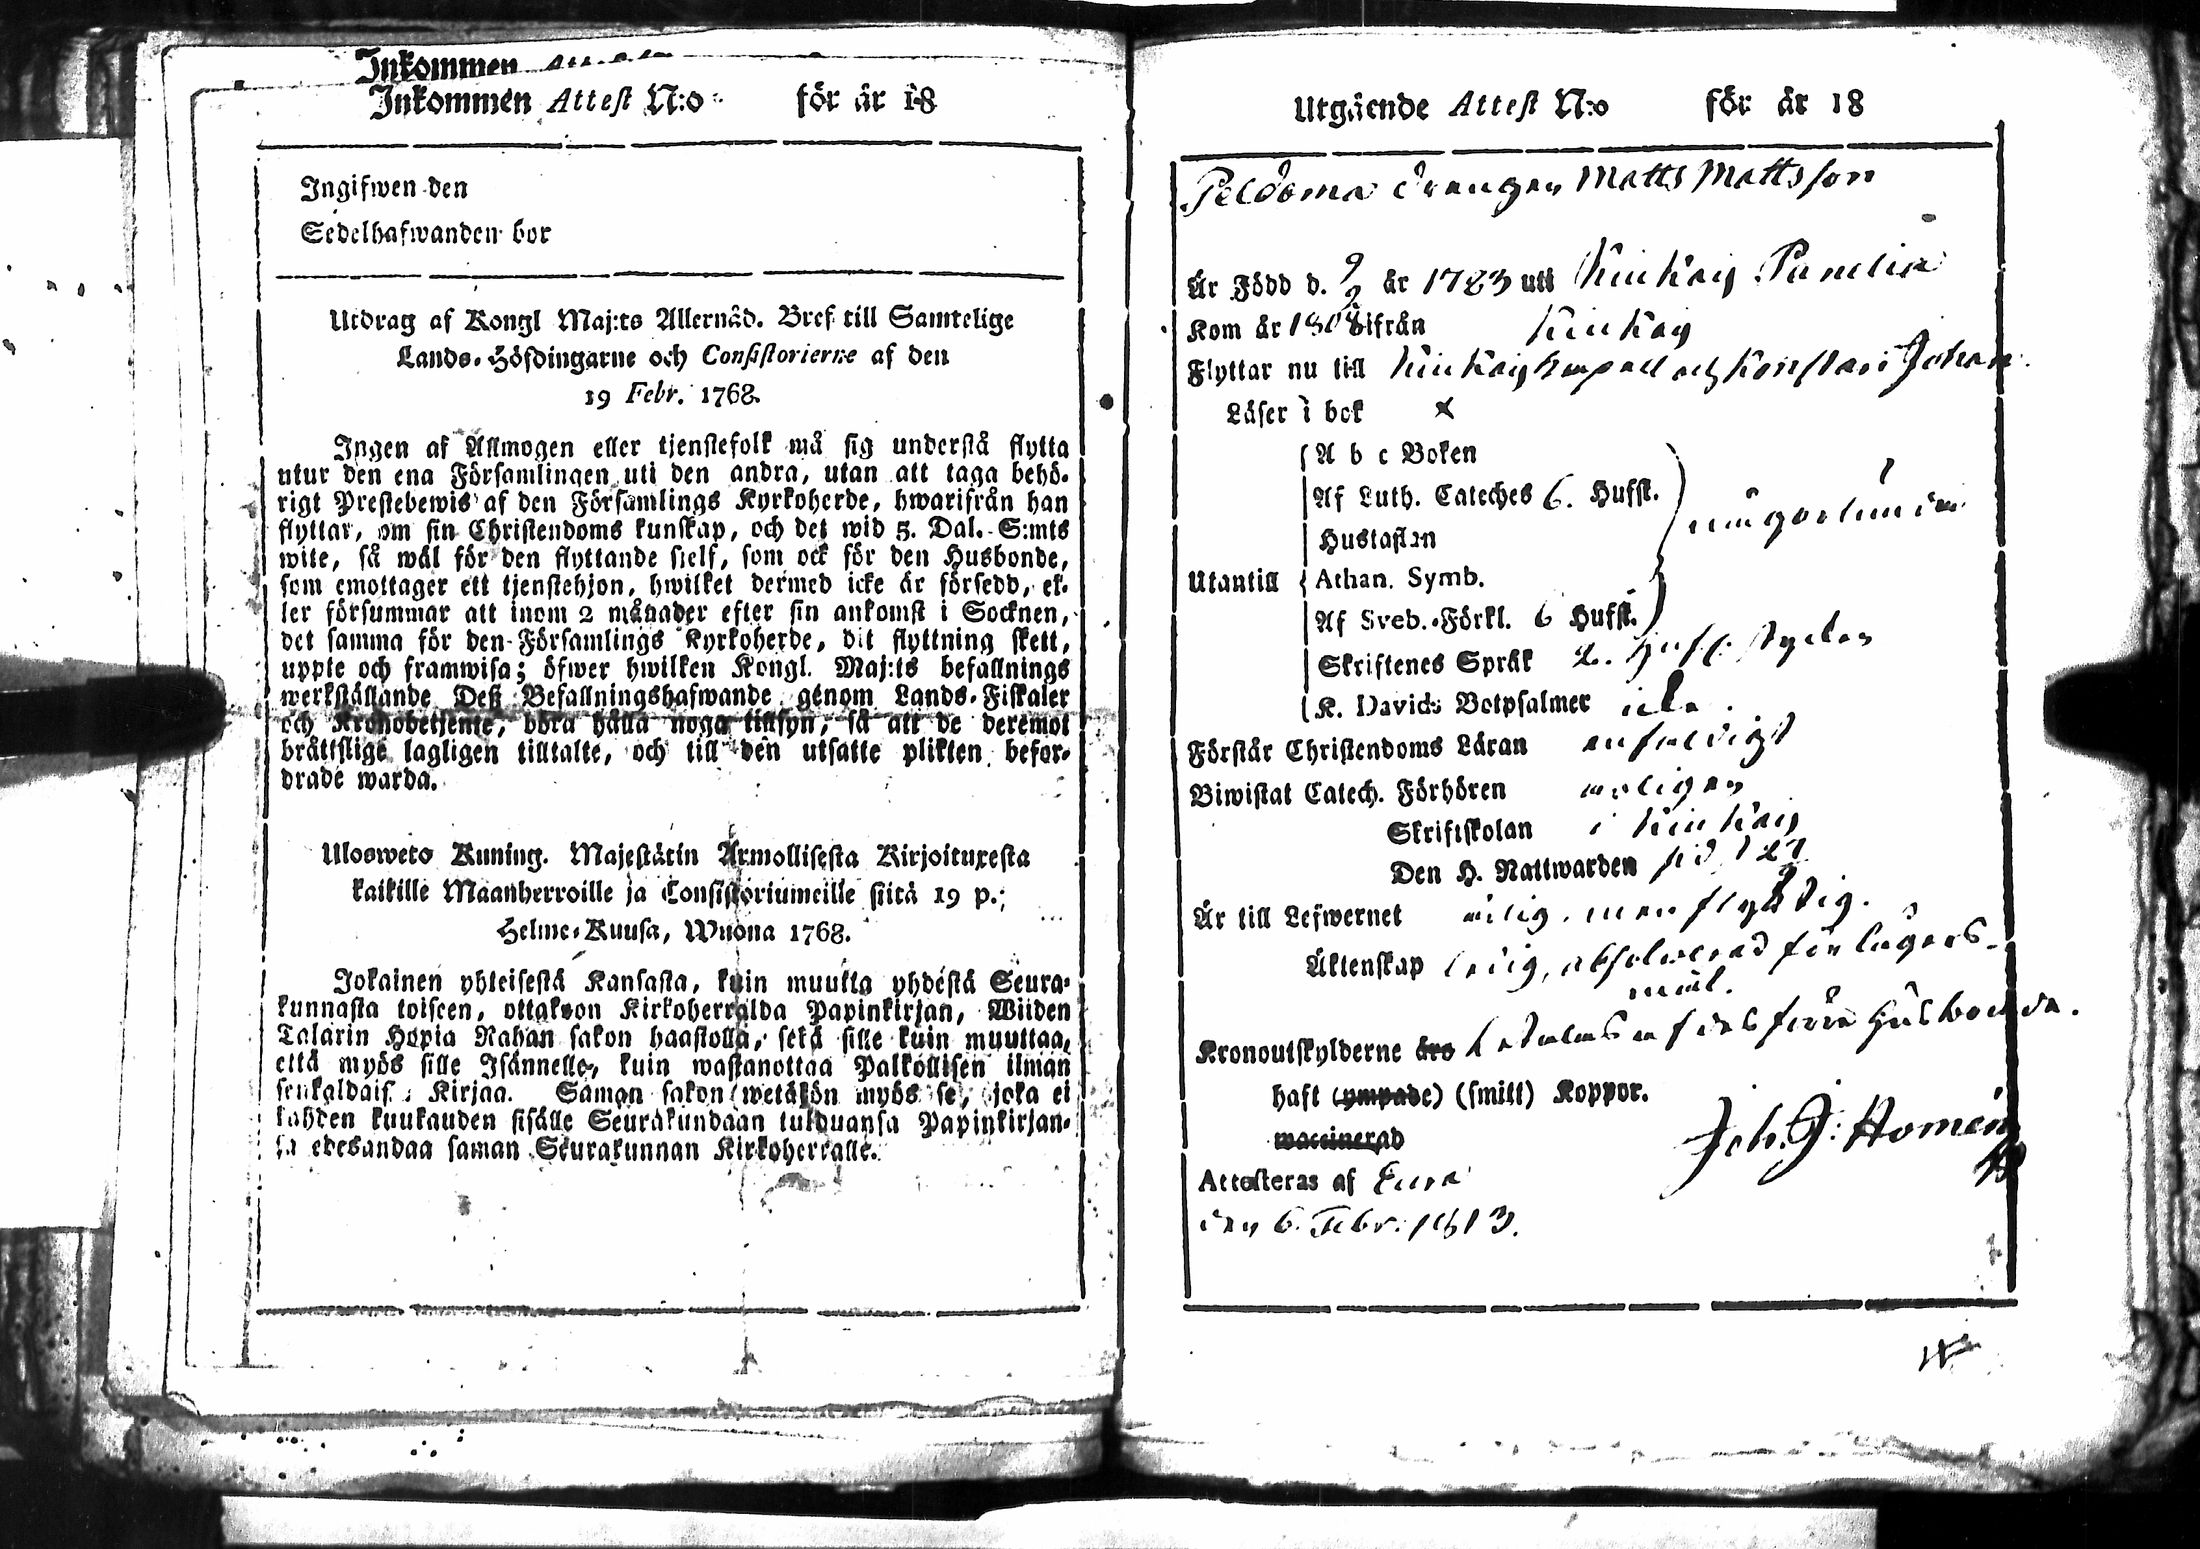 Inkommen
Inkommen Attest N:o för år 18
Ingifwen den
Sedelhafwanden bor
Utdrag af Kongl Maj:ts Allernåd. Bref till Samtelige
Lands-Höfdingarne och Consistorierne af den
19 Febr. 1768.
Ingen af Allmogen eller tjenstefolk må sig understå flytta
utur den ena Församlingen uti den andra, utan att taga behö-
rigt Prestebewis af den Församlings Kyrkoherde, hwarifrån han
flyttar, om sin Christendoms kunskap, och det wid 5. Dal. S:mts
wite, så wäl för den flyttande sielf, som ock för den Husbonde,
som emottager ett tjenstehjon, hwilket dermed icke är försedd, el-
ler försummar att inom 2 månader efter sin ankomst i Socknen,
det samma för den Församlings Kyrkoherde, dit flyttning skett,
uppte och framwisa; öfwer hwilken Kongl. Maj:ts befallnings
werkställande Deß Befallningshafwande genom Lands-Fiskaler
och Kronobetjente, böra hålla noga tillsyn, så att de deremot
bråttslige lagligen tilltalte, och till den utsatte plikten befor-
drade warda.
Ulosweto Kuning. Majestätin Armollisesta Kirjoituxesta
kaikille Maanherroille ja Consistoriumeille siitä 19 p.;
Helme-Kuusa, Wuona 1768.
Jokainen yhteisestä Kansasta, kuin muutta yhdestä Seura-
kunnasta toiseen, ottakoon Kirkoherralda Papinkirjan, Wiiden
Talarin Hopia Rahan sakon haastolla, sekä sille kuin muuttaa,
että myös sille Isännelle, kuin wastanottaa Palkollisen ilman
senkaldais. Kirjaa. Saman sakon wetäkön myös se, joka ei
kahden kuukauden sisälle Seurakundaan tulduansa Papinkirjan-
sa edesandaa saman Seurakunnan Kirkoherralle.
Utgående Attest N:o för år 18
Peldoma drengen Matts Mattsson
Är Född d. 9/2 år 1783 uti Kiukais Panelia
Kom år 1808 ifrån Kiukais
Flyttar nu till Kiukais kapell och Johan
Läser i bok x
A b c Boken
Af Luth. Cateches 6. Hufst.
Hustaflan
Utantill Athan. Symb.
Af Sveb. Förkl. 6 Hufst.
Skriftenes Språk 2. Hufst. stycken
K. Davids Botpsalmer icke.
Förstår Christendoms Läran enfaldigt
Biwistat Catech. Förhören årligen
Skriftskolan i Kiukais
Den H. Nattwarden sid
Är till Lefwernet ärlig, men
Äktenskap ledig, absolverad för lägers-
mål.
Kronoutskylderne äro betalas af des förre Husbonde.
haft (ympade) (smitt) Koppor.
waccinerad
Joh. J: Homén
Attesteras af Eura
den 6. Febr. 1813.